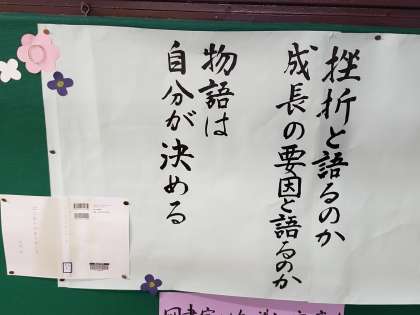 挫折と語るのか
成長の要因と語るのか
物語は
自分が決める